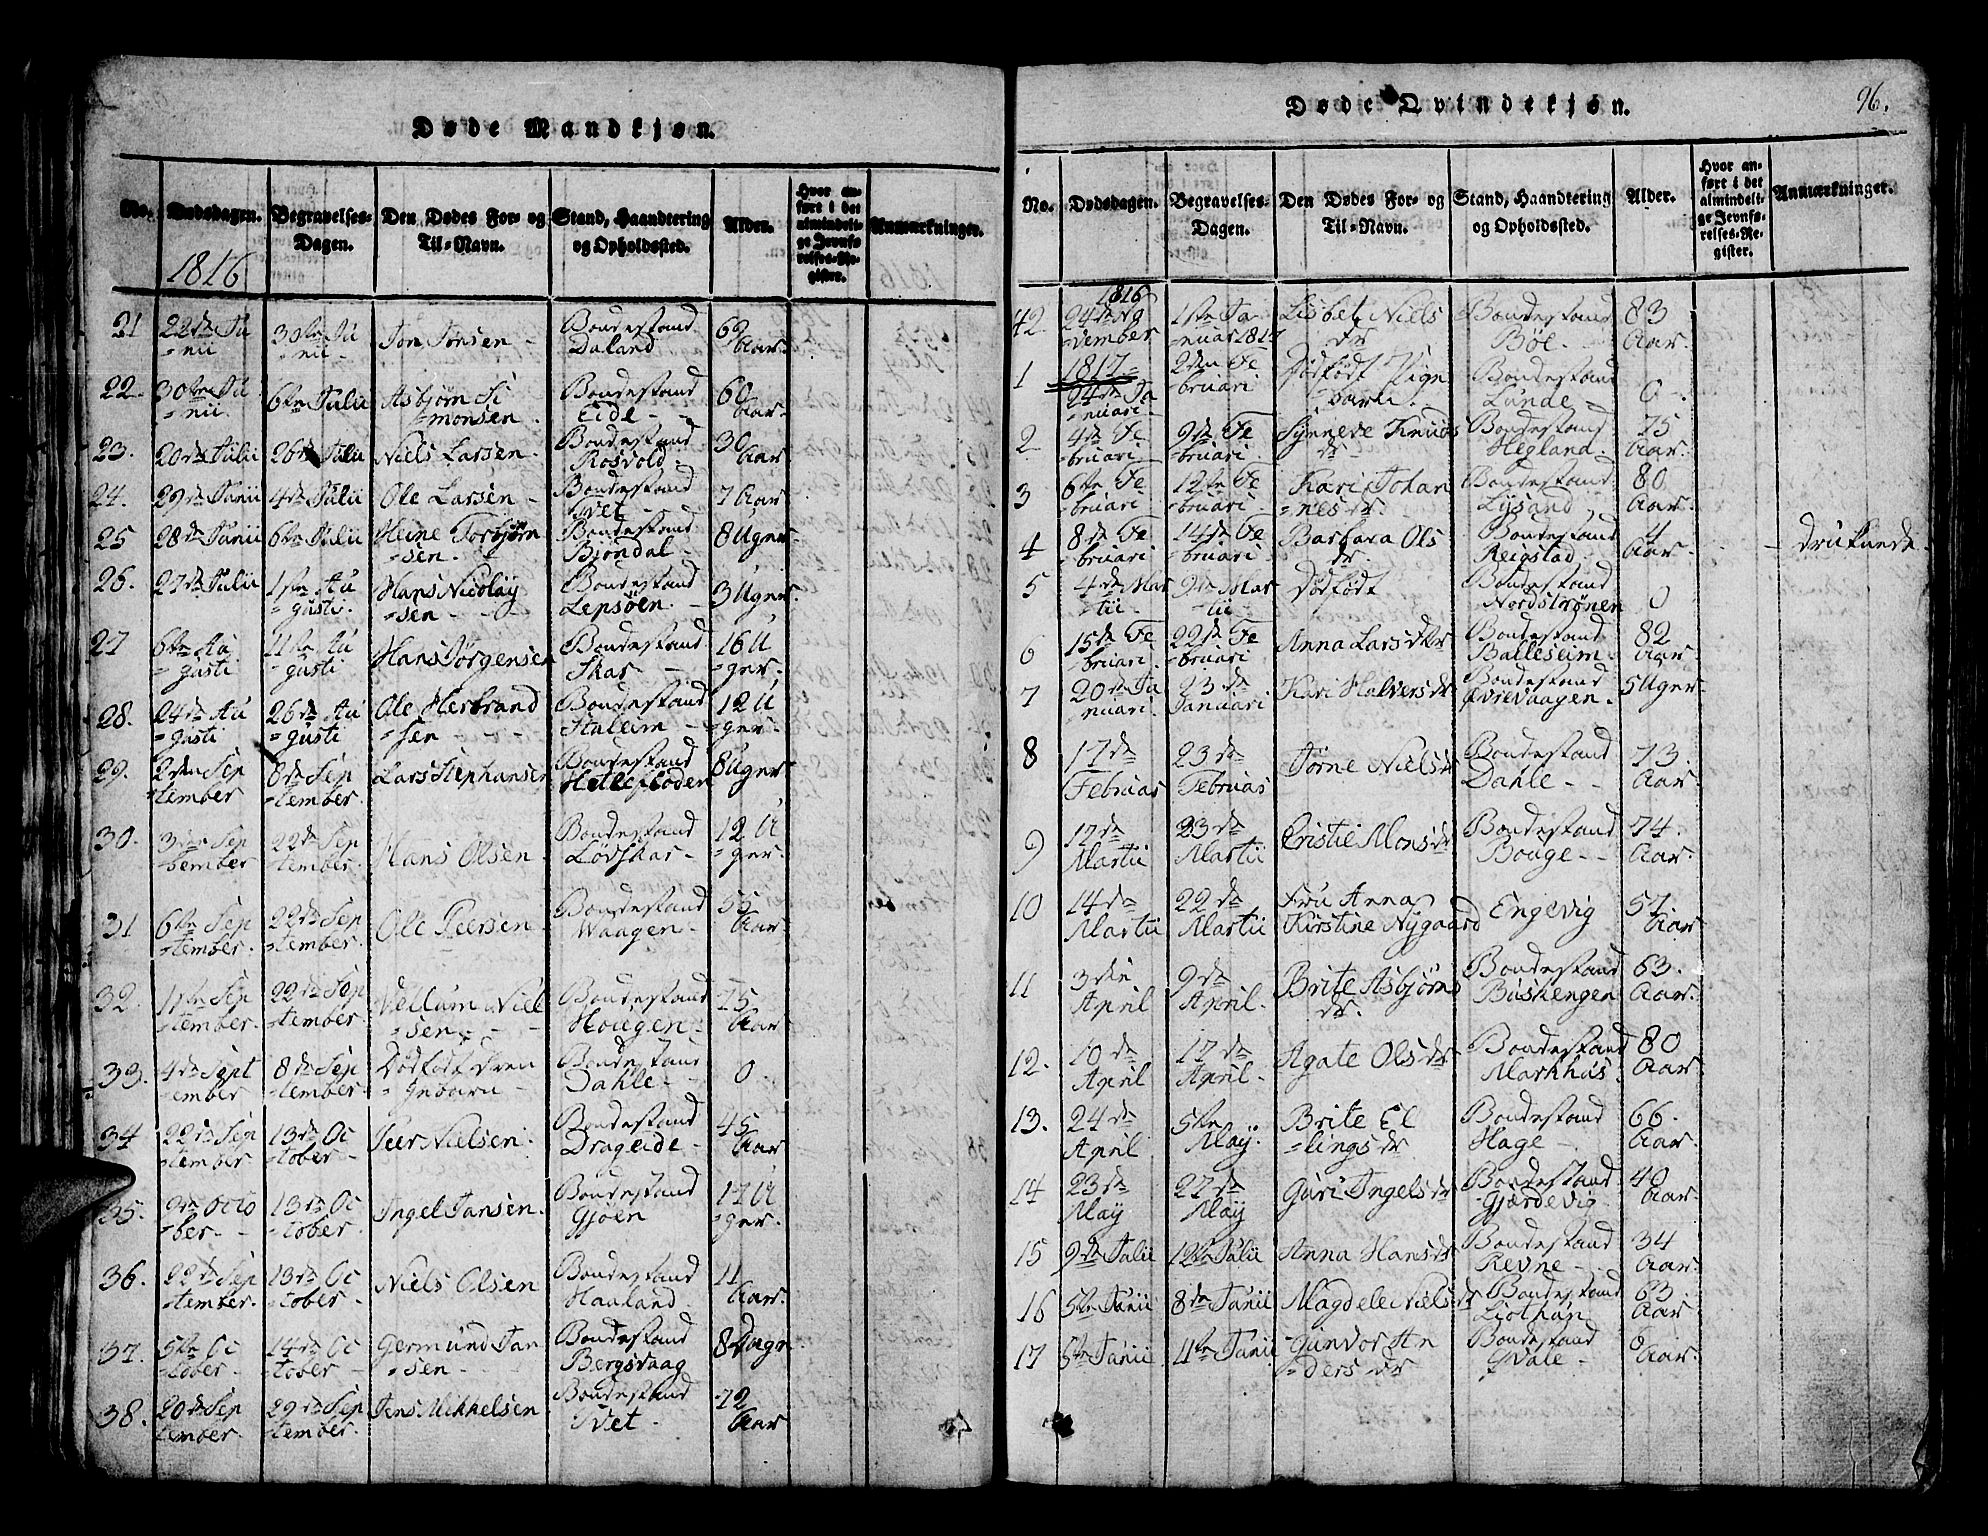 Døde Mandkjøn.
No. Dødsdagen. Begravelses-Dagen. Den Dødes For- og Til-Navn. Stand, Haandtering og Opholdssted. Alder. Hvor anført i det almindelige Jevnførelses-Register. Anmærkninger.
1816
21 22de Junii 30te Junii Jon Jonsen - Bondestand Daland 62 Aar.
22. 30te Junii 6te Julii Asbjørn Simonsen. Bondestand Eide - - 60 Aar.
23. 20de Julii 26de Julii Niels Larsen. Bondestand Rosvold 30 Aar
24. 29de Junii 4de Julii Ole Larsen - Bondestand Tvet - 7 Aar
25 28de Junii 6te Julii Heine Torbjørnsen. Bondestand Bjøndal - 8 Uger
26. 27de Julii 1ste Augusti. Hans Nicolaysen - - Bondestand Lepsøen. 3 Uger.
27 6te Augusti 11te Augusti. Hans Jørgensen Bondestand Skar - 16 Uger.
28. 24de Augusti 26de Augusti Ole Herbrandsen - - - Bondestand Stalleim - 12 Uger.
29. 2den September 8de September. Lars Stephansen Bondestand Hellefloden 8 Uger
30. 3die September 22de September. Hans Olsen. Bondestand Lødskar - 12 Uger.
31 6te September. 22de September. Ole Peersen. Bondestand Waagen - 55 Aar.
32. 11te September. 22de September Vellum Nielsen - - Bondestand Hougen - 75 Aar
33. 4de September 8de September. Dødfødt Drengebarn - Bondestand Dahle - - 0.
34 22de September 13de October - Peer Nielsen. Bondestand Drageide - 45 Aar
35. 2de October - 13de October. Ingel Jansen. Bondestand Gjøen 17 Uger.
36. 22de September. 13de October - Niels Olsen Bondestand Haaland 11 Aar.
37. 5te October 14de October - Germund Jansen - Bondestand Bergsvaag 8 Dage
38. 20de September 29de September. Jens Mikkelsen Bondestand Tvet - 72 Aar
Døde Qvindekjøn.
96.
No. Dødsdagen. Begravelses-Dagen. Den Dødes For- og Til-Navn. Stand, Haandtering og Opholdssted. Alder. Hvor anført i det almindelige Jevnførelses-Register. Anmærkninger.
1816
42. 24de November 1ste Januar 1817 Lisbet Niels dr Bondestand Bøe - 83 Aar.
1817
1 24de Januari. 2den Februari Dødfødt Pigebarn. Bondestand Lunde - 0 -
2 4de Februari 9de Februari Synneve Knuds dr Bondestand Hegland. 75 Aar.
3 6te Februari 12te Februari. Kari Johannes dr. Bondestand Lysand, 80 Aar.
4 8de Februari 14de Februari Barbara Ols dr Bondestand Reigstad. 4 Aar. - druknede.
5 4de Martii - 9de Martii - Dødfødt Bondestand Nordstrønen 0
6 15de Februari. 22de Februari Anna Lars dr Bondestand Balleseim. 82 Aar.
7 20de Januari. 23de Januari Kari Halvers dr Bondestand Øvrevaagen. 5 Uger
8 17de Februar 23de Februar Jørne Niels dr Bondestand Dahle - - 73. Aar
9 17de Martii 23de Martii Cristie Mons dr Bondestand Bouge - - 74. Aar.
10 14de Martii 22de Martii Fru Anna Kirstine Nygaard Engevig 57. Aar
11 3die April 9de April. Brite Asbjørns dr. Bondestand Buskengen 63. Aar.
12. 10de April 17de April. Agate Ols dr Bondestand Markhus. 80 Aar.
13. 24de April 5te Maÿ. Brite Ellings dr Bondestand Hage - 66. Aar.
14 23de Maÿ 27de Maÿ Guri Ingels dr Bondestand Gjerdevig 40 Aar.
15 9de Julii 12te Julii Anna Hans dr Bondestand Revne - 34 Aar.
16 5te Junii 8de Junii Magdele Niels dr Bondestand Liothun 63 Aar.
17 5te Junii 11te Junii Gunvor Anders dr Bondestand Qvale - 8 Aar.